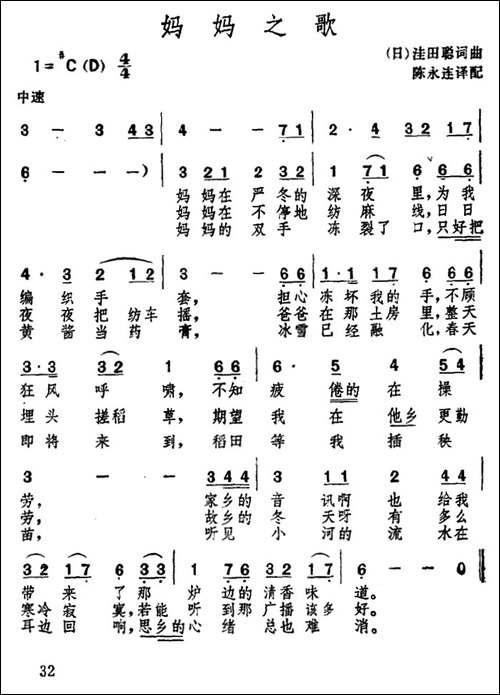 妈妈之歌
1=♯C(D) 4/4
(日)洼田聪词曲
陈永连译配
中速
3 — 3 43 | 4 — — 71 | 2· 4 32 17 |
6 — — —) | 3 21 2 32 | 1 (71) 6 66 |
妈 妈在 严 冬的 深 夜 里,为我
妈 妈在 不 停地 纺 麻 线,日日
妈 妈的 双 手 冻 裂了 口,只好把
4· 3 2 12 | 3 — — 66 | 1·1 17 6 66 |
编 织 手 套, 担心 冻 坏 我的 手,不顾
夜 夜 把 纺车 摇, 爸爸 在 那 土房 里,整天
黄 酱 当 药 膏, 冰雪 已 经 融 化,春天
3·3 32 1 66 | 6· 5 4 54 |
狂 风 呼 啸,不知 疲 倦的 在 操
埋 头 搓稻 草,期望 我 在 他乡 更勤
即 将 来 到,稻田 等 我 插 秧
3 — — 344 | 3 11 2 44 |
劳, 家乡的 音 讯啊 也 给我
劳, 故乡的 冬 天呀 有 多么
苗, 听见 小 河的 流 水在
32 17 6 33 | 3 11 12 17 | 6 — — 0 ‖
带 来 了 那 炉 边的 清香 味 道。
寒冷 寂 寞,若能 听 到那 广播 该多 好。
耳边 回 响,思乡的 心 绪 总也 难 消。
32